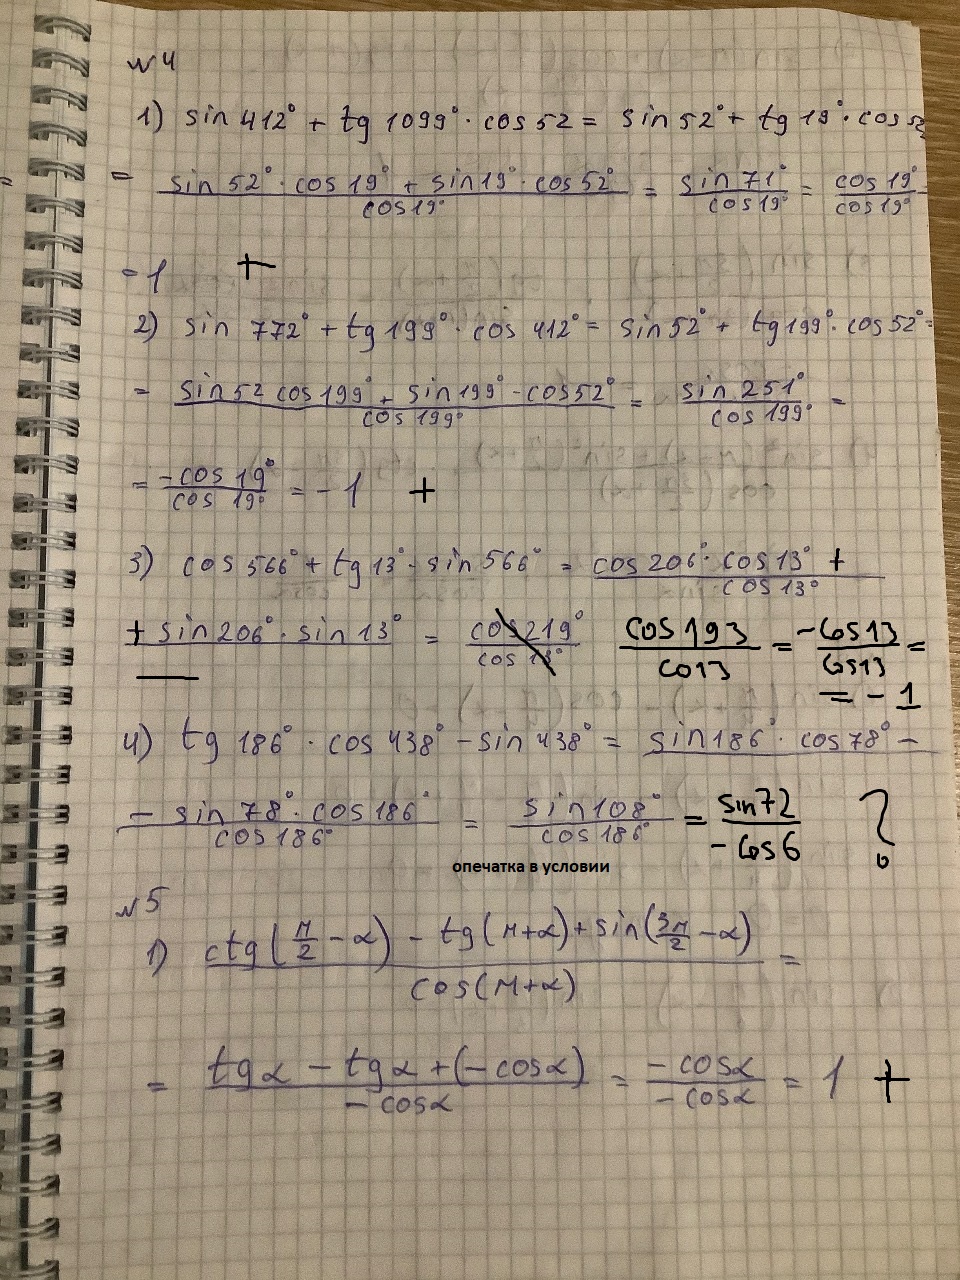 №4
1) sin 412° + tg 1099° · cos 52 = sin 52° + tg 19° · cos 52
= = (sin 52° · cos 19° + sin 19° · cos 52°)/(cos 19°) = (sin 71°)/(cos 19°) = (cos 19°)/(cos 19°) =
= 1 +
2) sin 772° + tg 199° · cos 412° = sin 52° + tg 199° · cos 52° =
= (sin 52 cos 199° + sin 199° · cos 52°)/(cos 199°) = (sin 251°)/(cos 199°) =
= (-cos 19°)/(cos 19°) = - 1 +
3) cos 566° + tg 13° · sin 566° = (cos 206° · cos 13° +)/(cos 13°)
+ sin 206° · sin 13° = (cos 219°)/(cos 13°) (cos 193)/(co13) = (-cos 13)/(cos 13) =
= - 1
4) tg 186° · cos 438° - sin 438° = sin 186° · cos 78° -
(- sin 78° · cos 186°)/(cos 186°) = (sin 108°)/(cos 186°) = (sin 72)/(- cos 6) ?
опечатка в условии
№5
1) (ctg(π/2 - α) - tg(π+α) + sin(3π/2 - α))/(cos(π+α)) =
= (tgα - tgα + (-cosα))/(- cosα) = (- cosα)/(- cosα) = 1 +